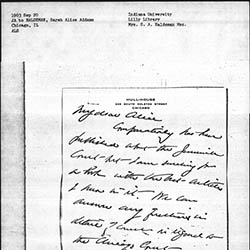 1903 Sep 20
JA to HALDEMAN, Sarah Alice Addams
Chicago, IL
ALS
Indiana University
Lilly Library
Mrs. S. A. Haldeman Mss.
HULL-HOUSE
335 SOUTH HALSTED STREET
CHICAGO
My dear Alice
Comparatively has been
published about the Juvenile
Court but I am sending you
a book with the best
I know in it. We can
answer any questions in
detail
the Chicago Court